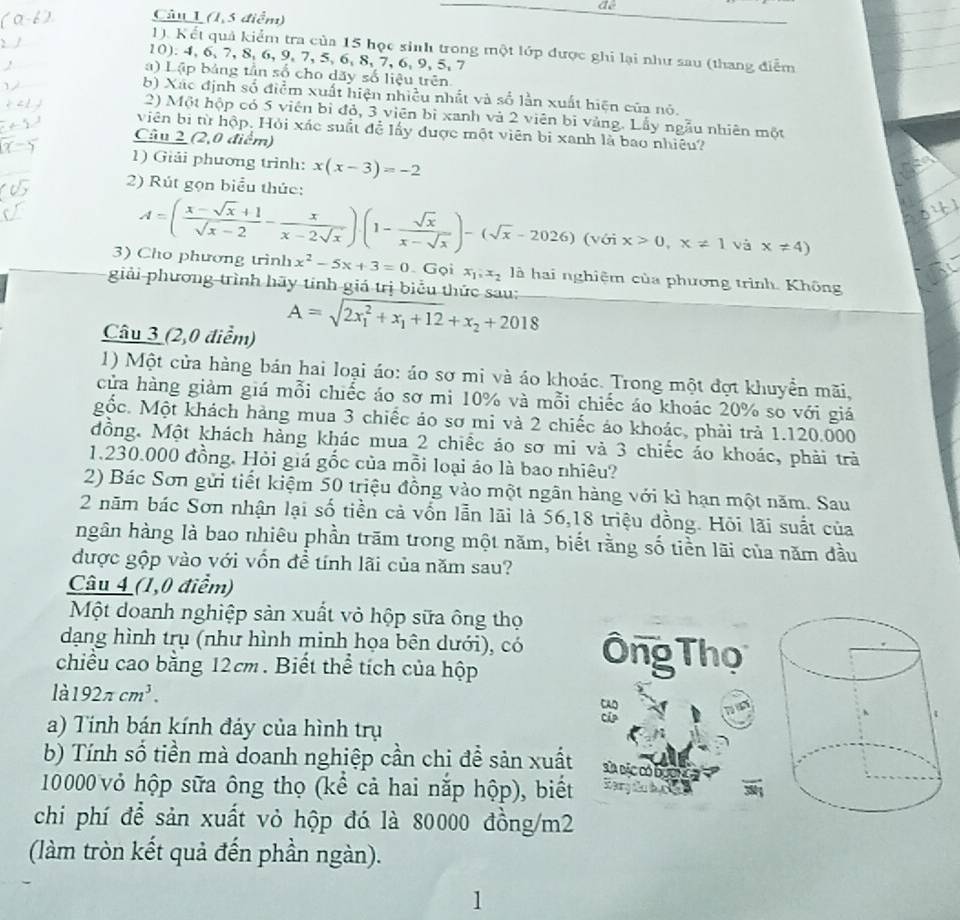 Câu 1 (1,5 điểm)
1). Kết quả kiểm tra của 15 học sinh trong một lớp được ghi lại như sau (thang điểm
10): 4, 6, 7, 8, 6, 9, 7, 5, 6, 8, 7, 6, 9, 5, 7
a) Lập bảng tần số cho dãy số liệu trên.
b) Xác định số điểm xuất hiện nhiều nhất và số lần xuất hiện của nó.
2) Một hộp có 5 viên bi đỏ, 3 viên bi xanh và 2 viên bi vàng. Lấy ngẫu nhiên một
viên bi từ hộp. Hỏi xác suất để lấy được một viên bi xanh là bao nhiêu?
Câu 2 (2,0 điểm)
1) Giải phương trình: x(x-3)=-2
2) Rút gọn biểu thức:
A = ((x-√x+1)/(√x-2) - x/(x-2√x)).(1 - √x/(x-√x)) - (√x-2026) (với x > 0, x ≠ 1 và x ≠ 4)
3) Cho phương trình x² - 5x + 3 = 0. Gọi x₁; x₂ là hai nghiệm của phương trình. Không
giải phương trình hãy tính giá trị biểu thức sau:
A = √(2x₁² + x₁ + 12) + x₂ + 2018
Câu 3 (2,0 điểm)
1) Một cửa hàng bán hai loại áo: áo sơ mi và áo khoác. Trong một đợt khuyến mãi,
cửa hàng giảm giá mỗi chiếc áo sơ mi 10% và mỗi chiếc áo khoác 20% so với giá
gốc. Một khách hàng mua 3 chiếc áo sơ mi và 2 chiếc áo khoác, phải trả 1.120.000
đồng. Một khách hàng khác mua 2 chiếc áo sơ mi và 3 chiếc áo khoác, phải trả
1.230.000 đồng. Hỏi giá gốc của mỗi loại áo là bao nhiêu?
2) Bác Sơn gửi tiết kiệm 50 triệu đồng vào một ngân hàng với kì hạn một năm. Sau
2 năm bác Sơn nhận lại số tiền cả vốn lẫn lãi là 56,18 triệu đồng. Hỏi lãi suất của
ngân hàng là bao nhiêu phần trăm trong một năm, biết rằng số tiền lãi của năm đầu
được gộp vào với vốn để tính lãi của năm sau?
Câu 4 (1,0 điểm)
Một doanh nghiệp sản xuất vỏ hộp sữa ông thọ
dạng hình trụ (như hình minh họa bên dưới), có
chiều cao bằng 12cm. Biết thể tích của hộp
là 192π cm³.
a) Tính bán kính đáy của hình trụ
b) Tính số tiền mà doanh nghiệp cần chi để sản xuất
10000 vỏ hộp sữa ông thọ (kể cả hai nắp hộp), biết
chi phí để sản xuất vỏ hộp đó là 80000 đồng/m2
(làm tròn kết quả đến phần ngàn).
Ông Thọ
CAO
CẤP
1